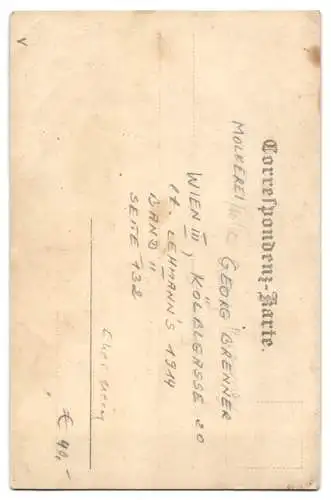 Correspondenz-Karte.
MOLKEREI GEORG BRENNER
WIEN III, KÖLBLGASSE 20
lt. LEHMANN'S 1914
BAND II
SEITE 132
€ 40,-